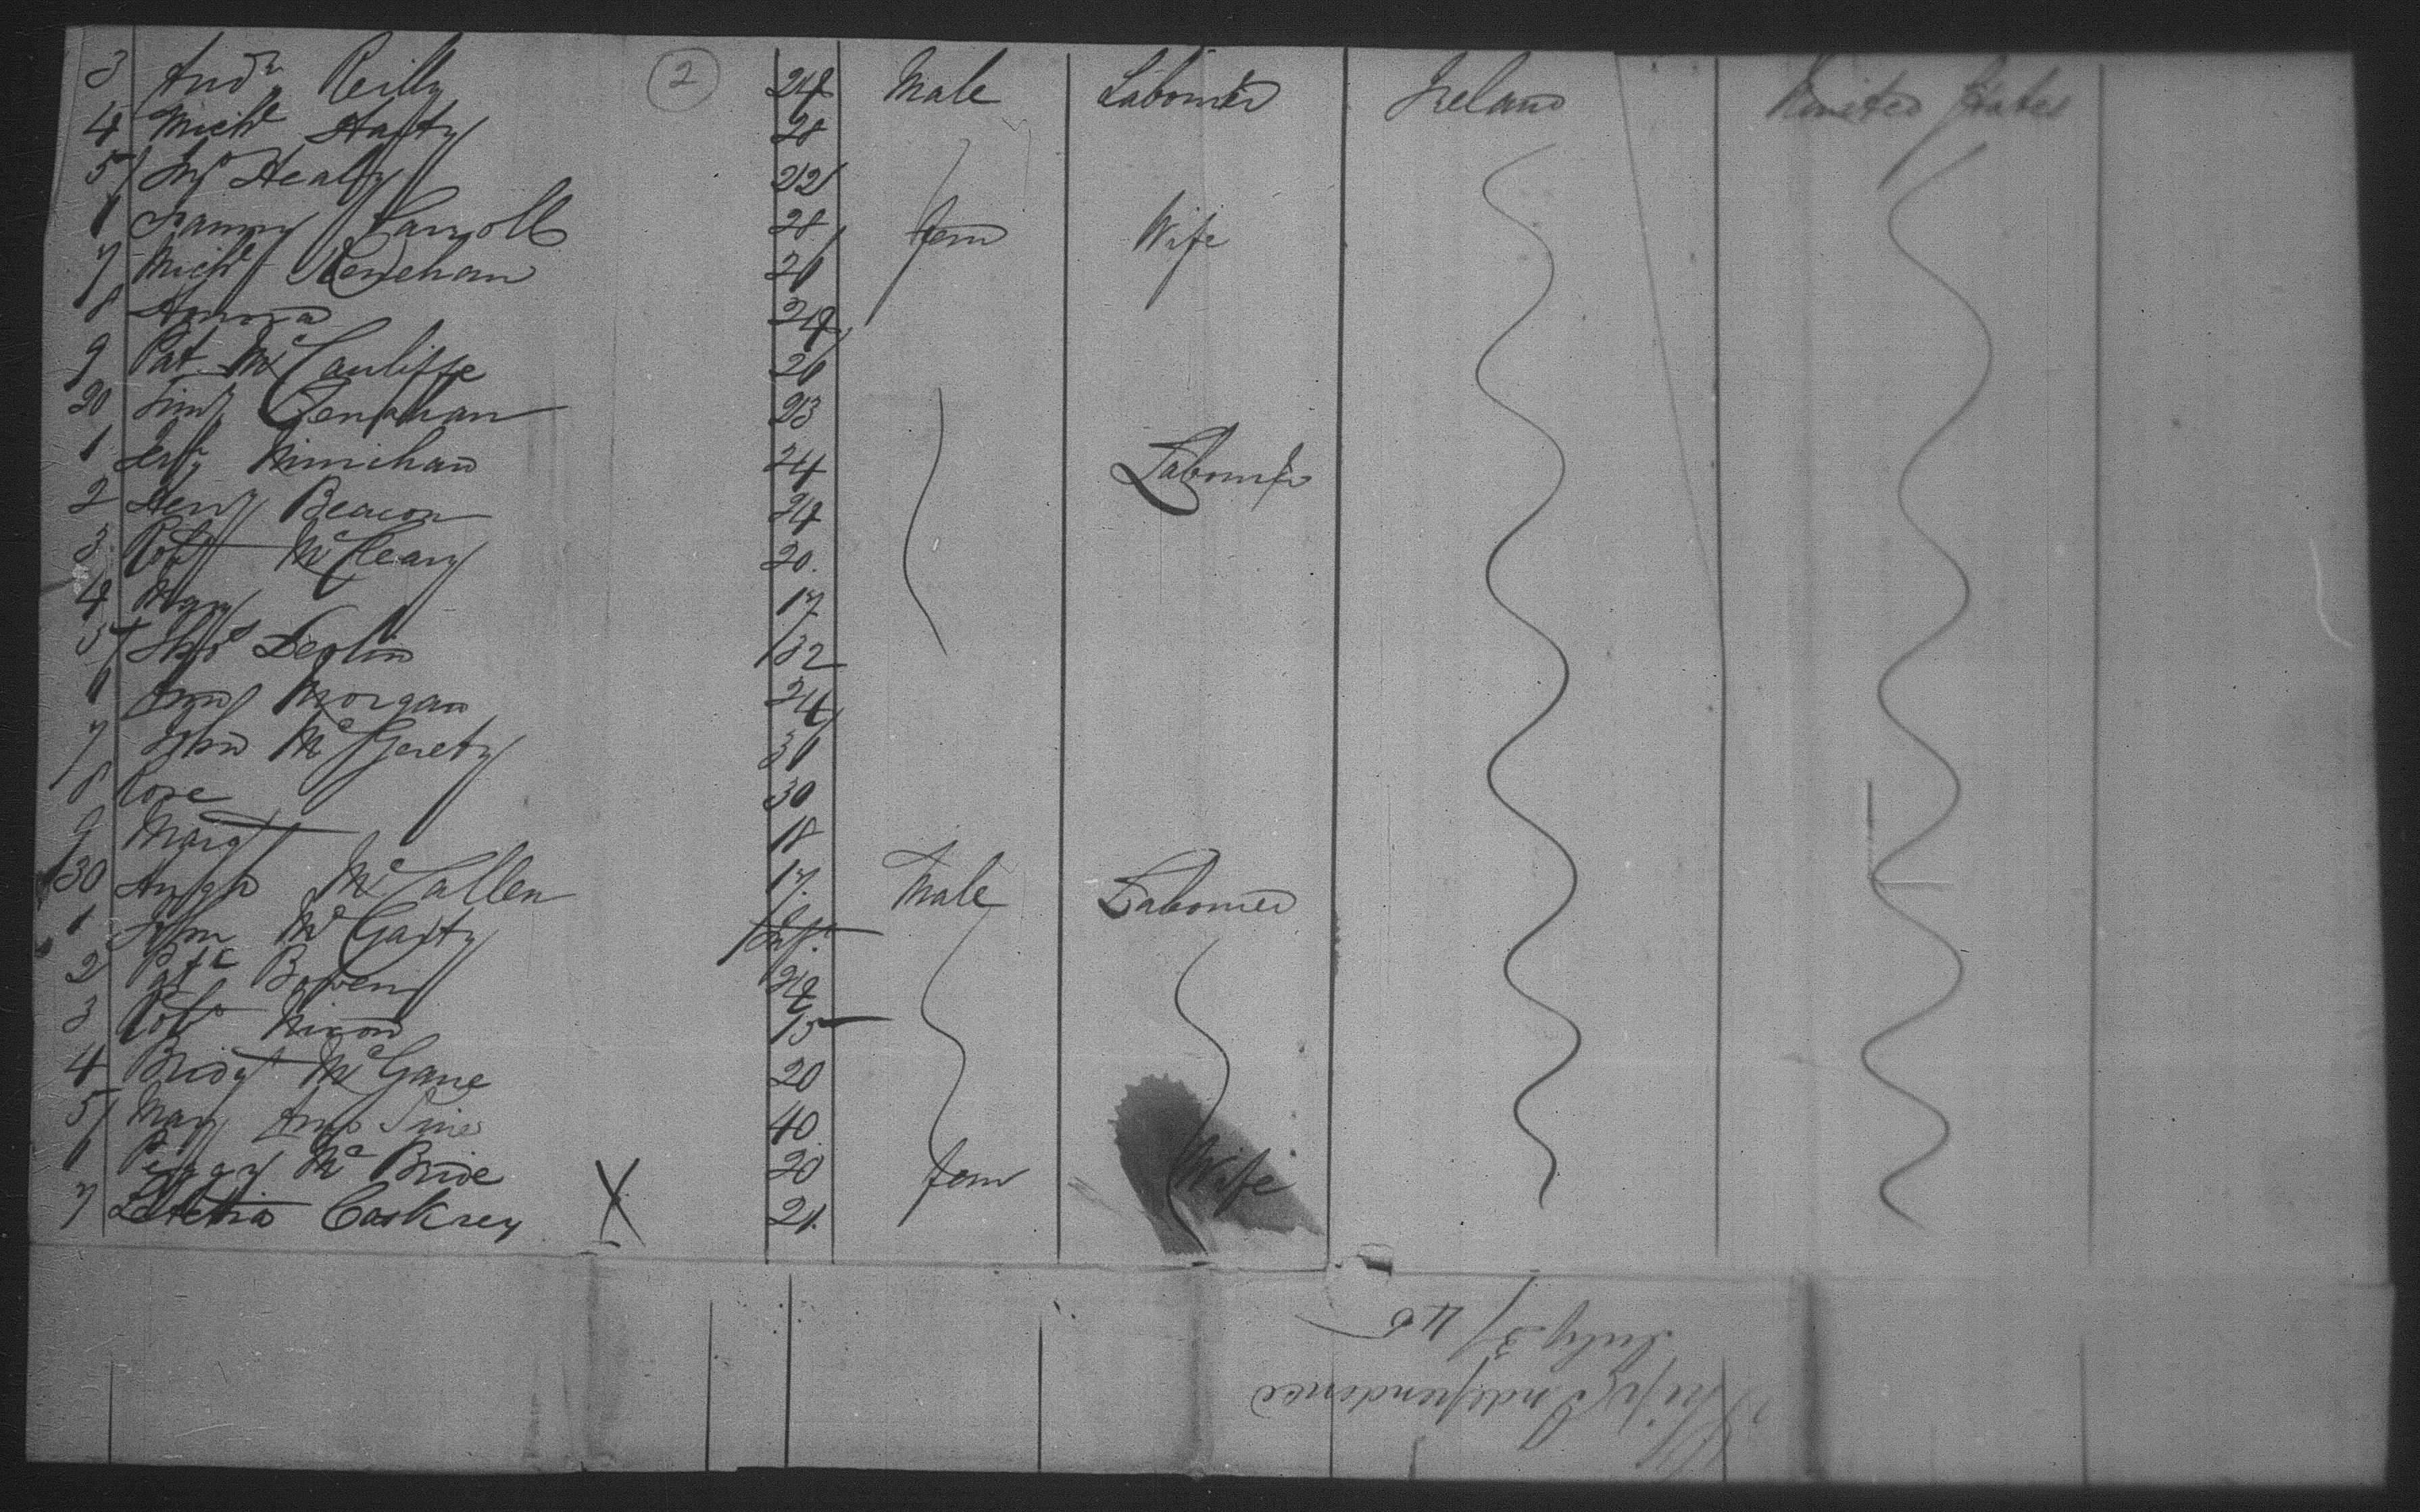 2
3 Andw Reilly 24 Male Labourer Ireland United States
4 Michl Hafty 28
5 Healy 22
Fanny Carroll 28 fem Wife
7 Michl Renehan 26
8 Honora 24
9 Pat Mc Cauliffe 26
20 Timy Clenahan 23
1 Jerry Minihan 24 Labourer
2 Henry Beacon 24
3 Robt McCleary 20.
4 Mary 17
5 Devlin 32
6 Ann Morgan 24
7 John McGerety 30
8 Rose 30
9 Margt 18
130 Hugh McCallen 17. Male Labourer
1 John McGarty Inft
2 Patk Bowen 24
3 Robt Nixon 15
4 Bridgt McGane 20
5 Mary Ann 40
6 Peggy McBride 20 fem Wife
7 Letetia Caskrey X 21.
Ship Independence
July 3/46